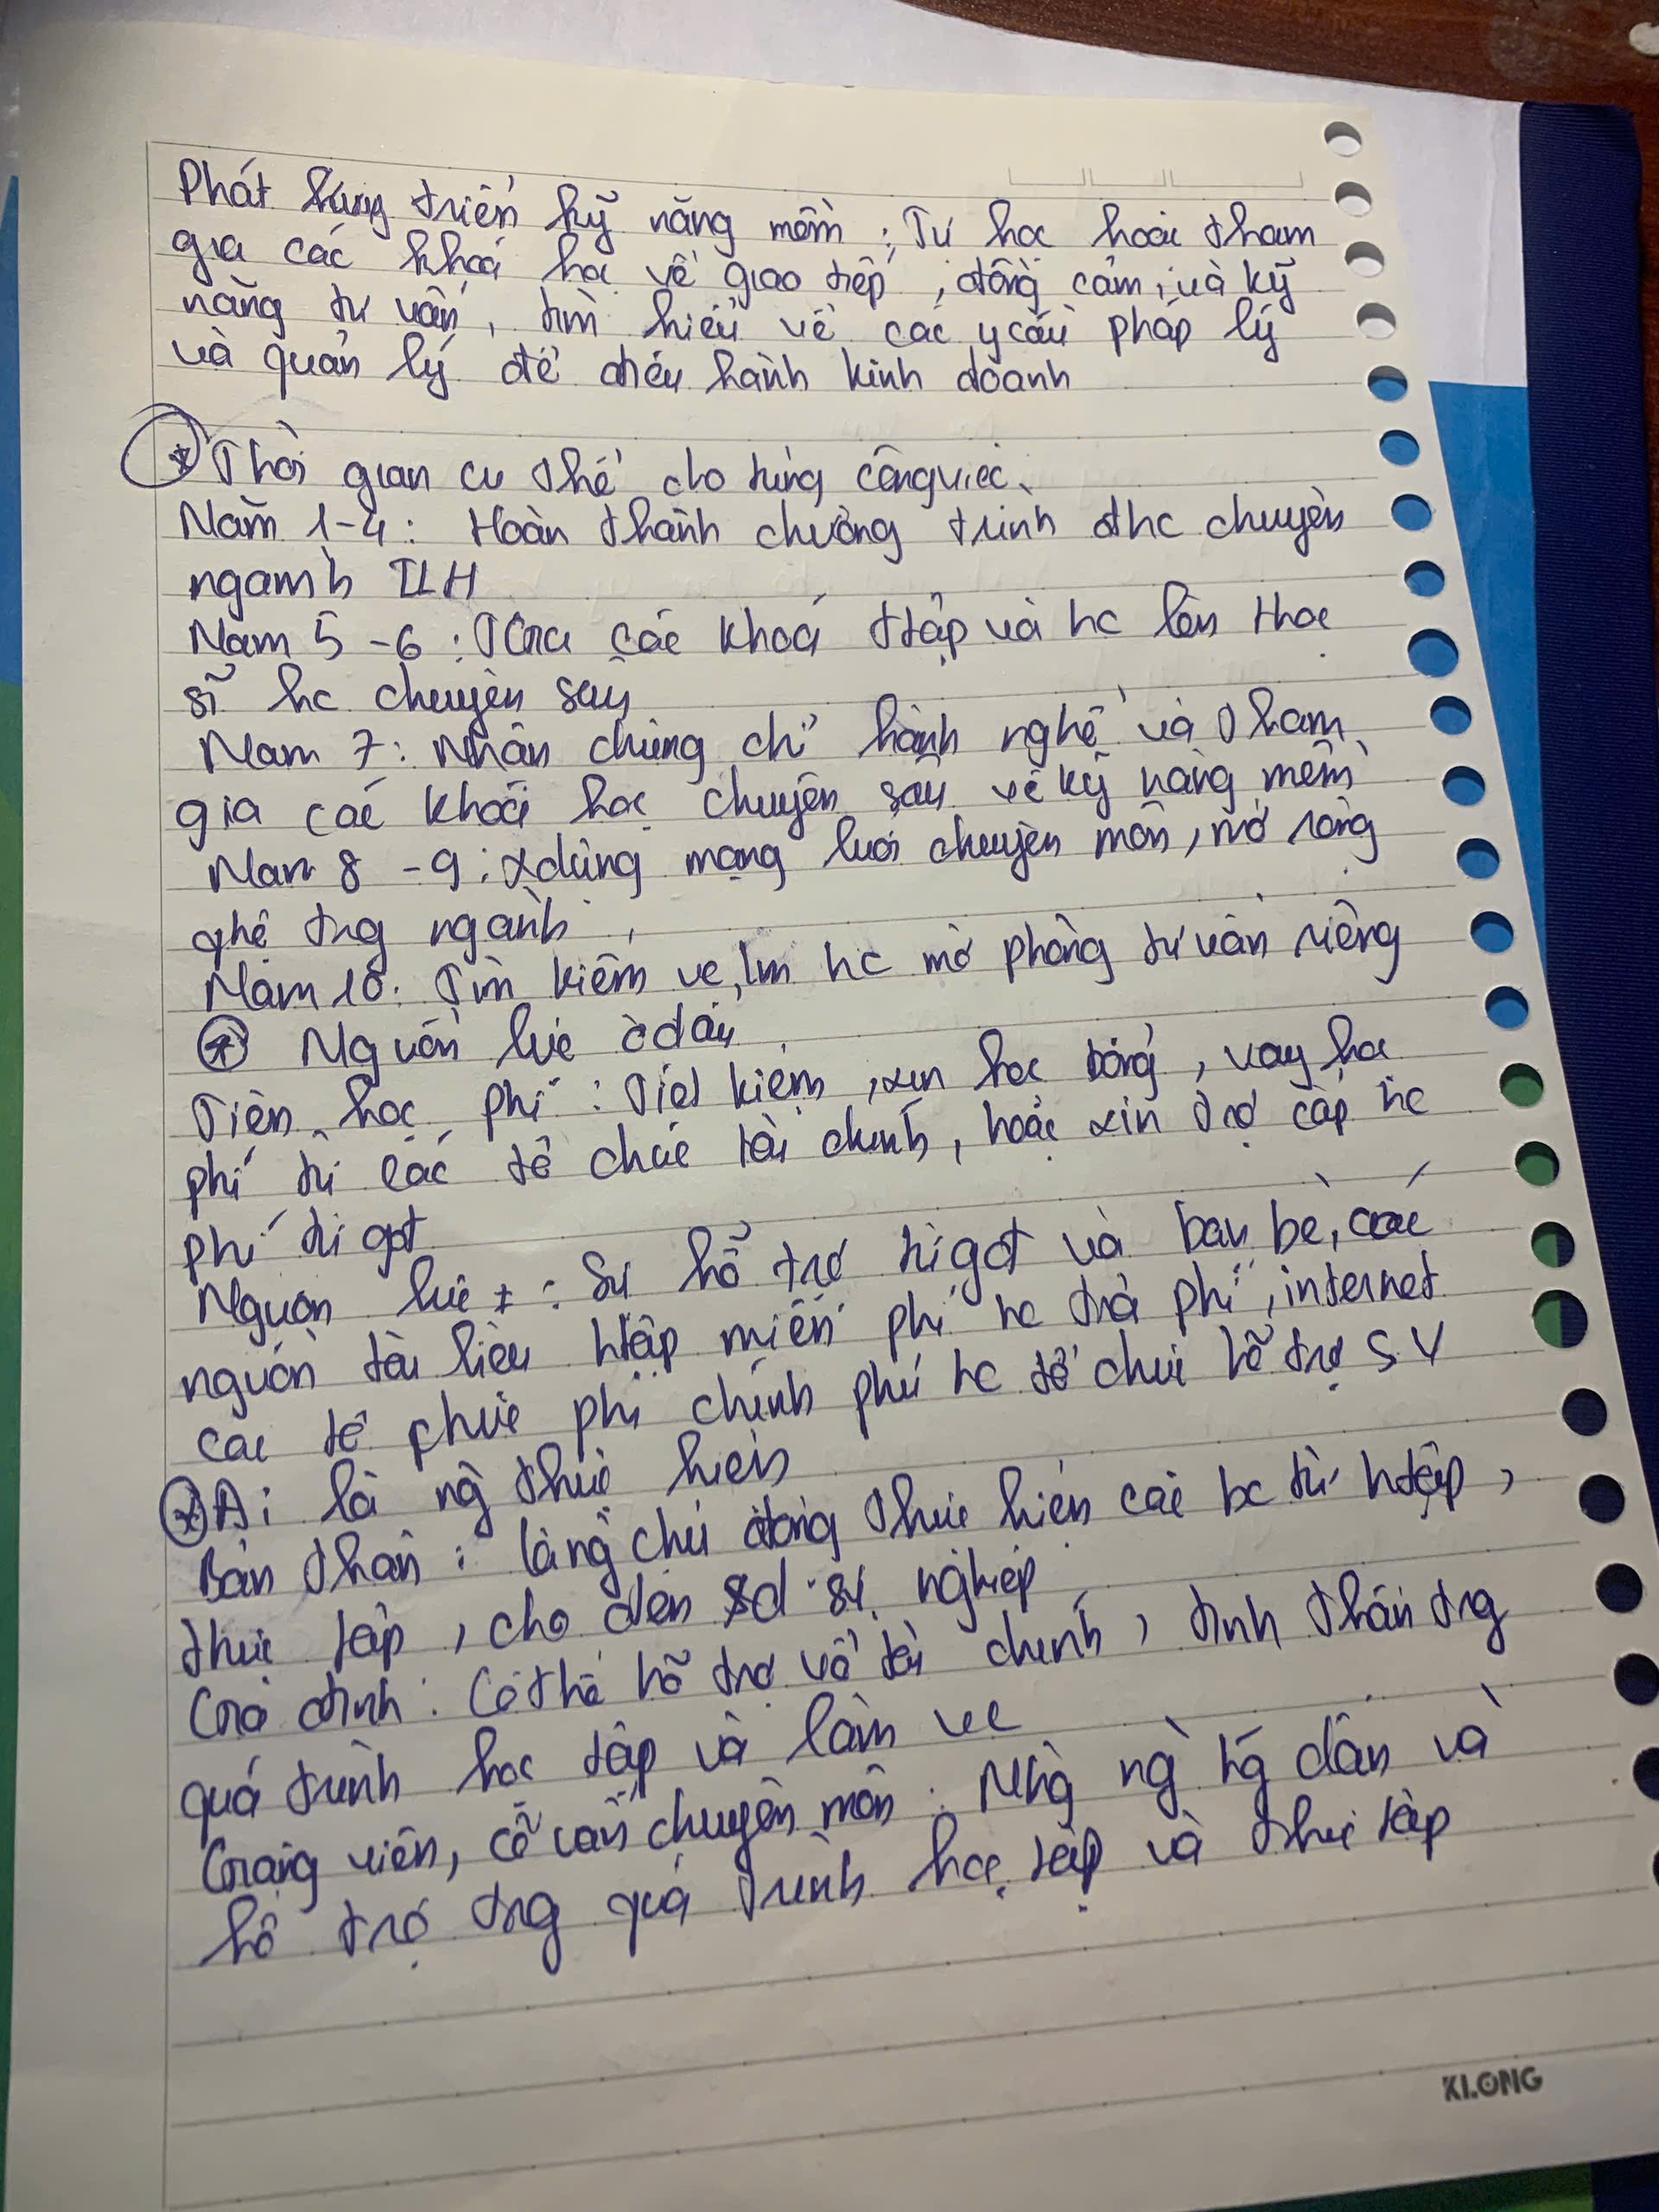 Phát triển kỹ năng mềm : Tự học hoặc tham
gia các khoá học về giao tiếp, đồng cảm, và kỹ
năng tư vấn, tìm hiểu về các ycầu pháp lý
và quản lý để điều hành kinh doanh
* Thời gian cụ thể cho từng công việc.
Năm 1-4: Hoàn thành chương trình đhc chuyên
ngành TLH
Năm 5-6: các khoá ttập và hc lên thạc
sĩ hc chuyên sâu
Năm 7: Nhận chứng chỉ hành nghề và tham
gia các khoá học chuyên sâu về kỹ năng mềm
Năm 8-9: xdựng mạng lưới chuyên môn, mở rộng
qhệ trg ngành
Năm 10: Tìm kiếm vc làm hc mở phòng tư vấn riêng
* Nguồn lực ở đâu
Tiền học phí: Tiết kiệm, xin học bổng, vay học
phí từ các tổ chức tài chính, hoặc xin trợ cấp hc
phí từ gđ
Nguồn lực ≠: Sự hỗ trợ từ gđ và bạn bè, các
nguồn tài liệu htập miễn phí hc trả phí, internet
các tổ chức phi chính phủ hc tổ chức hỗ trợ SV
* Ai là ng thực hiện
Bản thân: là ng chủ động thực hiện các bc từ htập,
thực tập, cho đến sự nghiệp
Gia đình: Có thể hỗ trợ về tài chính, tinh thần trg
quá trình học tập và làm vc
Giảng viên, cố vấn chuyên môn: Nhg ng hg dẫn và
hỗ trợ trg quá trình học tập và thực tập
KLONG